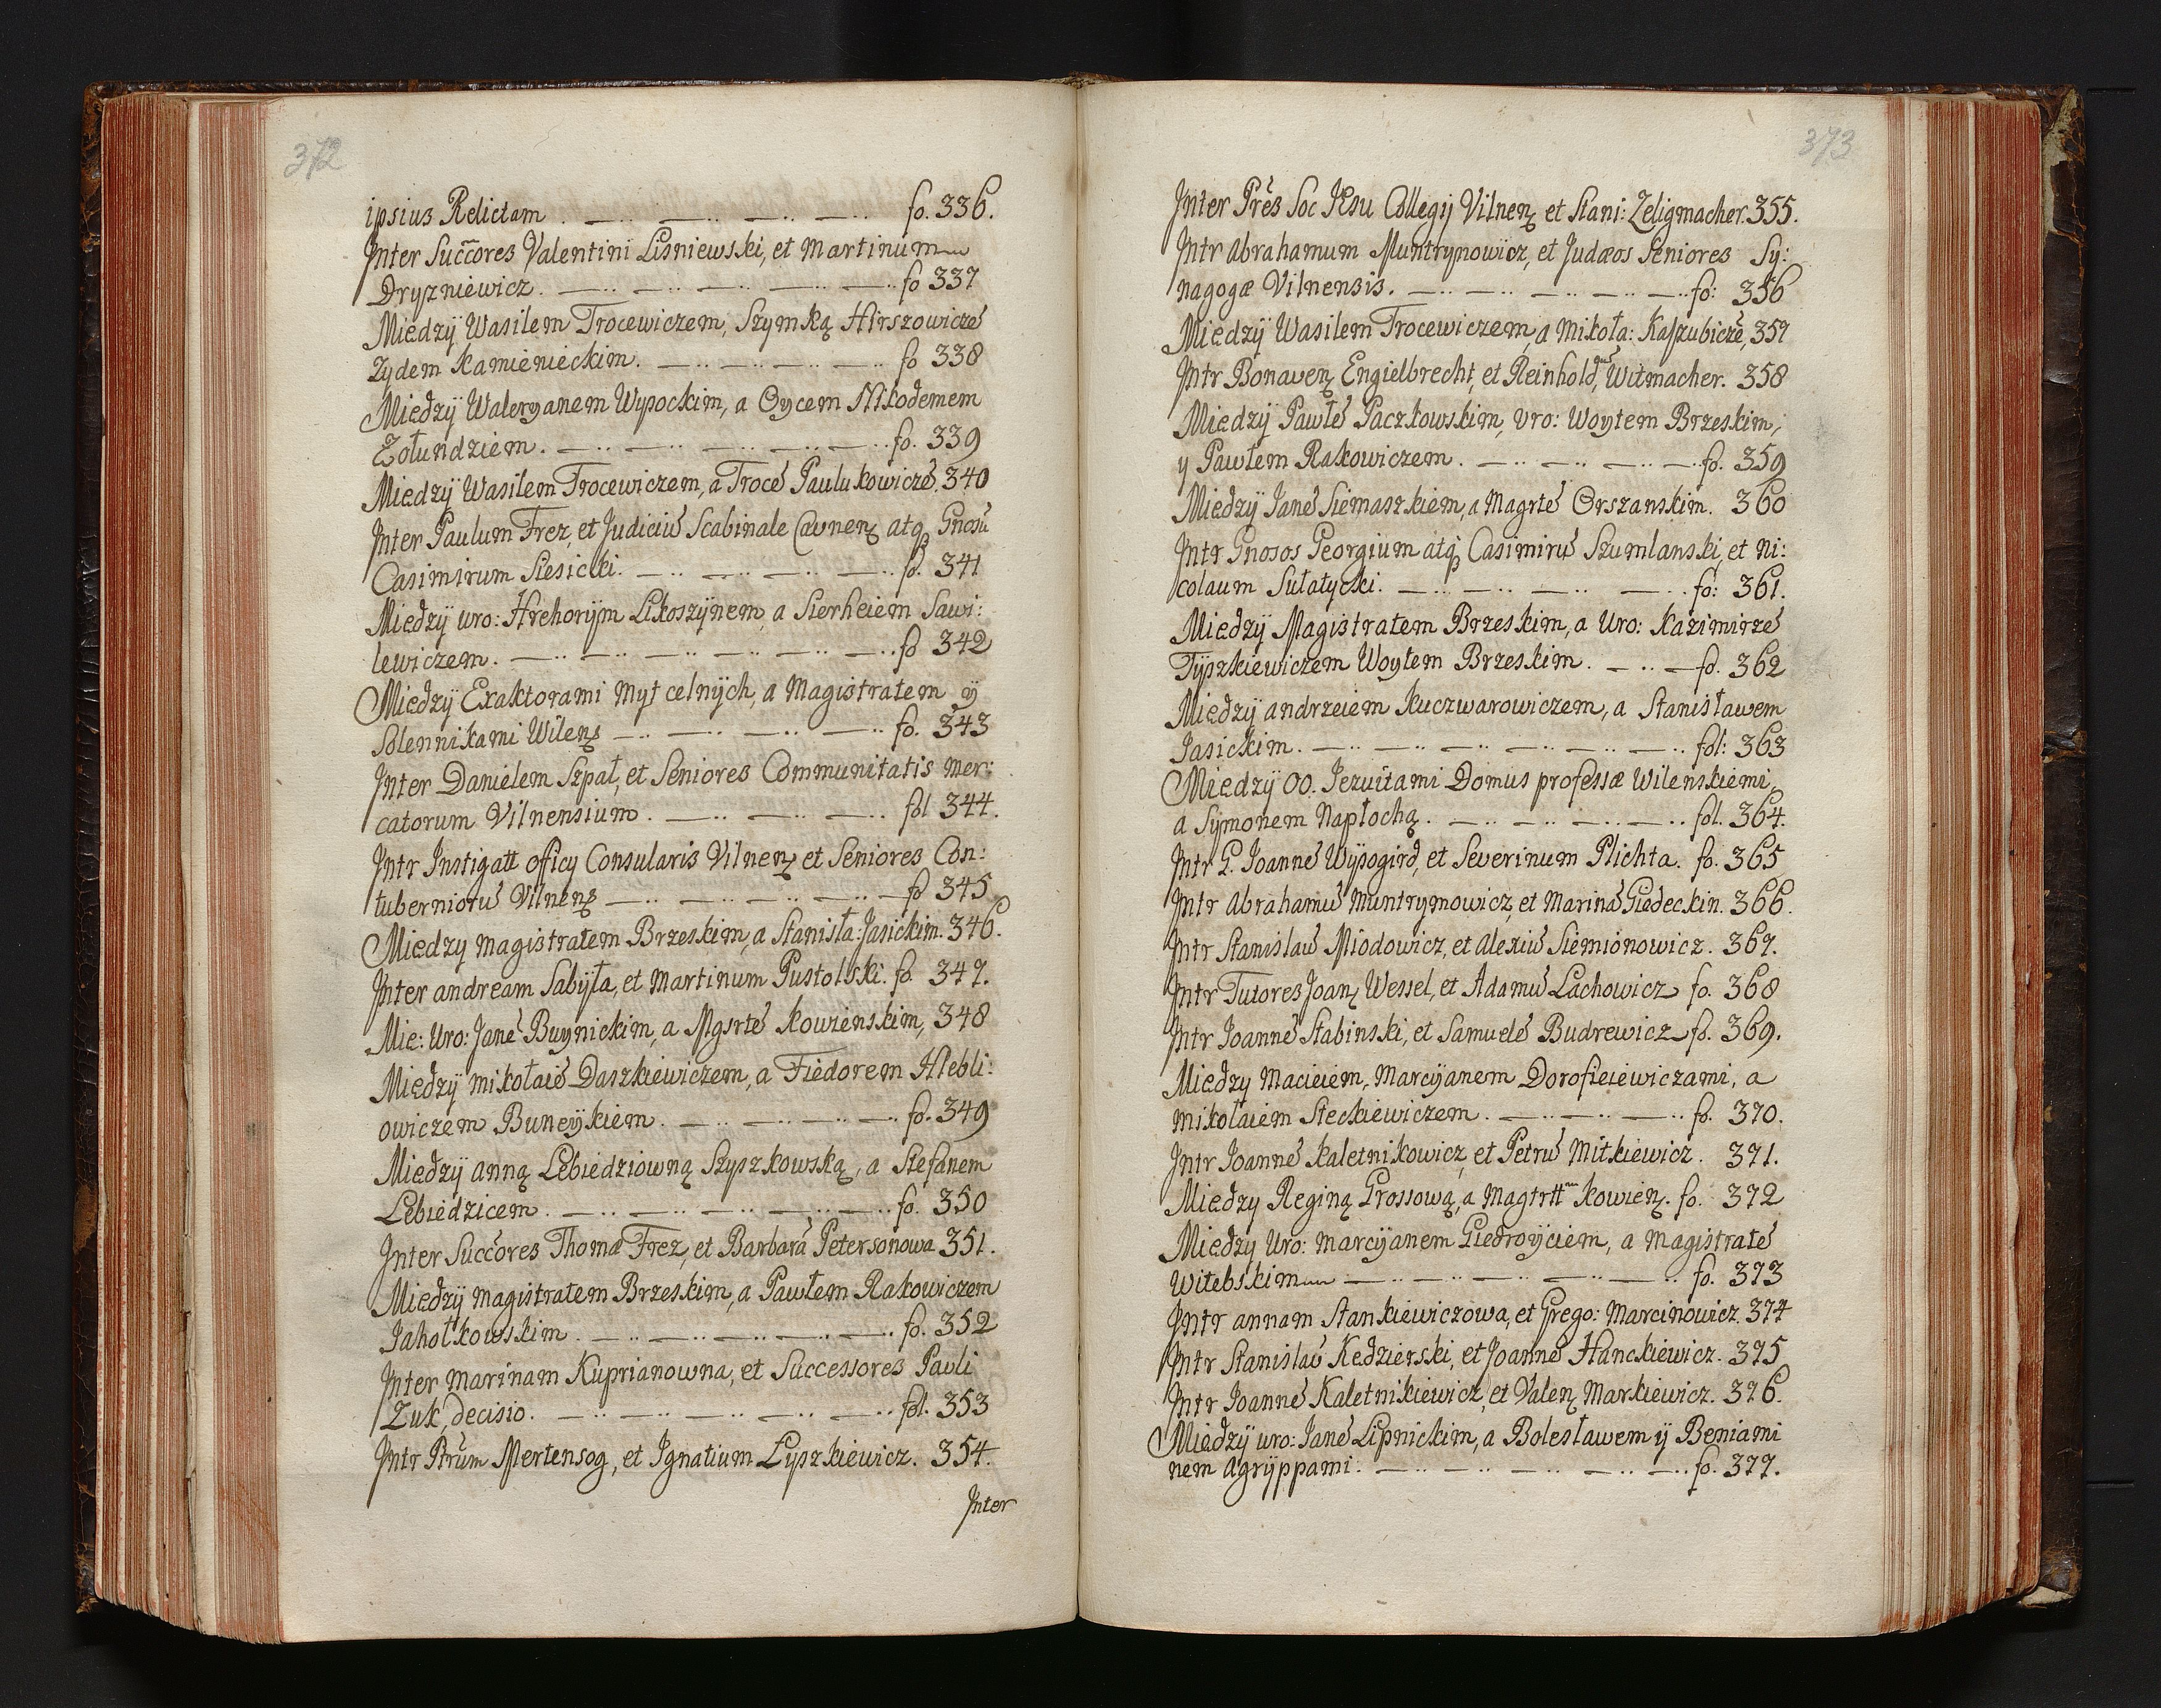 372
ipsius Relictam . — .. — .. — .. — .. fo. 336.
Inter Succ̃ores Valentini Lisniewski, et Martinum
Dryzniewicz. — .. — .. — .. — .. — .. fo 337
Miedzÿ Wasilem Trocewiczem, Szymką Hirszowiczē
Zydem Kamienieckim. — .. — .. — .. — .. fo 338
Miedzÿ Waleryanem Wypockim, a Oycem Nikodemem
Zołundziem. — .. — .. — .. — .. — .. fo. 339
Miedzÿ Wasilem Trocewiczem, a Trocē Paulukowiczē. 340
Inter Paulum Frez, et Judiciū Scabinale Caunen̄ atq̨ Gnosū
Casimirum Siesicki. — .. — .. — .. — .. fo. 341
Miedzÿ uro: Hrehorÿm Likoszÿnem, a Sierheiem Sawi:
lewiczem. — .. — .. — .. — .. — .. — .. fo 342
Miedzÿ Exaktorami Myt celnÿch, a Magistratem ÿ
Solennikami Wilen̄ — .. — .. — .. — .. fo. 343
Inter Danielem Szpał, et Seniores Communitatis Mer:
catorum Vilnensium. — .. — .. — .. fol 344.
Intr Instigatt officy Consularis Vilnen̄ et Seniores Con:
tuberniorū Vilnen̄ — .. — .. — .. — .. — fo 345
Miedzy magistratem Brzeskim, a Stanisła: Jasickim. 346.
Inter andream Sabÿła, et Martinum Pustolski. fo. 347.
Mie: Uro: Janē Buynickim, a Mgsrtē Kowienskim, 348
Miedzÿ mikołaiē Daszkiewiczem, a Fiedorem Hlebli:
owiczem Buneÿkiem. — .. — .. — .. — .. fo. 349
Miedzÿ anną Lebiedziowną Szyszkowską, a Stefanem
Lebiedzicem. — .. — .. — .. — .. — .. fo. 350
Inter Succ̃ores Thomæ Frez, et Barbarā Petersonowa 351.
Miedzÿ magistratem Brzeskim, a Pawłem Rakowiczem
Jahołkowskim. — .. — .. — .. — .. — .. fo. 352
Inter marinam Kuprianowna, et Successores Pauli
Zuk, decisio. — .. — .. — .. — .. — .. fol. 353
Intr Ptrūm Mertensog, et Ignatium Łyszkiewicz. 354.
Inter
373
Inter Prēs Soc Jesu Collegij Vilnen̄ et Stani: Zeligmacher. 355.
Intr Abrahamum Muntrymowicz, et Judæos Seniores Sy:
nagogæ Vilnensis. — .. — .. — .. — .. — .. fo: 356
Miedzÿ Wasilem Trocewiczem, a Mikoła: Kaszubiczē, 357
Intr Bonaven̄ Engielbrecht, et Reinhold, Witmacher. 358
Miedzÿ Pawłē Paczkowskim, Uro: Woytem Brzeskim,
y Pawłem Rakowiczem. — .. — .. — .. — .. fo. 359
Miedzÿ Janē Siemaszkiem, a Magrtē Orszanskim. 360
Intr Gnosos Georgium atq̨ Casimirū Szumlanski, et Ni:
colaum Sułatycki. — .. — .. — .. — .. fo: 361.
Miedzÿ Magistratem Brzeskim, a Uro: Kazimirzē
Tÿszkiewiczem Woytem Brzeskim. — .. — fo. 362
Miedzÿ andrzeiem Kuczwarowiczem, a Stanisławem
Jasickim. — .. — .. — .. — .. — .. — .. fol: 363
Miedzÿ OO. Jezuitami Domus professæ Wilenskiemi,
a Sÿmonem Napłochą. — .. — .. — .. — .. fol. 364.
Intr G. Joannē Wÿsogird, et Severinum Plichta. fo. 365
Intr Abrahamū Muntrymowicz, et Marinā Giedeckin. 366.
Intr Stanislaū Miodowicz, et Alexiū Siemionowicz. 367.
Intr Tutores Joan̄ Wessel, et Adamū Lachowicz fo. 368
Intr Joannē Stabinski, et Samuelē Budrewicz fo. 369.
Miedzy Macieiem, Marcÿanem Dorofieiewiczami, a
Mikołaiem Steckiewiczem. — .. — .. — .. fo. 370.
Intr Joannē Kaletnikowicz, et Petrū Mitkiewicz. 371.
Miedzy Reginą Grossową, a Magtrtt Kowien̄. fo. 372
Miedzy Uro: Marcÿanem Giedroÿciem, a Magistratē
Witebskim — .. — .. — .. — .. — .. fo. 373
Intr annam Stankiewiczowa, et Grego: Marcinowicz. 374
Intr Stanislaū Kedzierski, et Joannē Hanckiewicz. 375
Intr Joannē Kaletnikiewicz, et Valen̄ Markiewicz. 376.
Miedzÿ uro: Janē Lipnickim, a Bolesławem ÿ Beniami
nem Agrÿppami. — .. — .. — .. — .. — .. fo. 377.